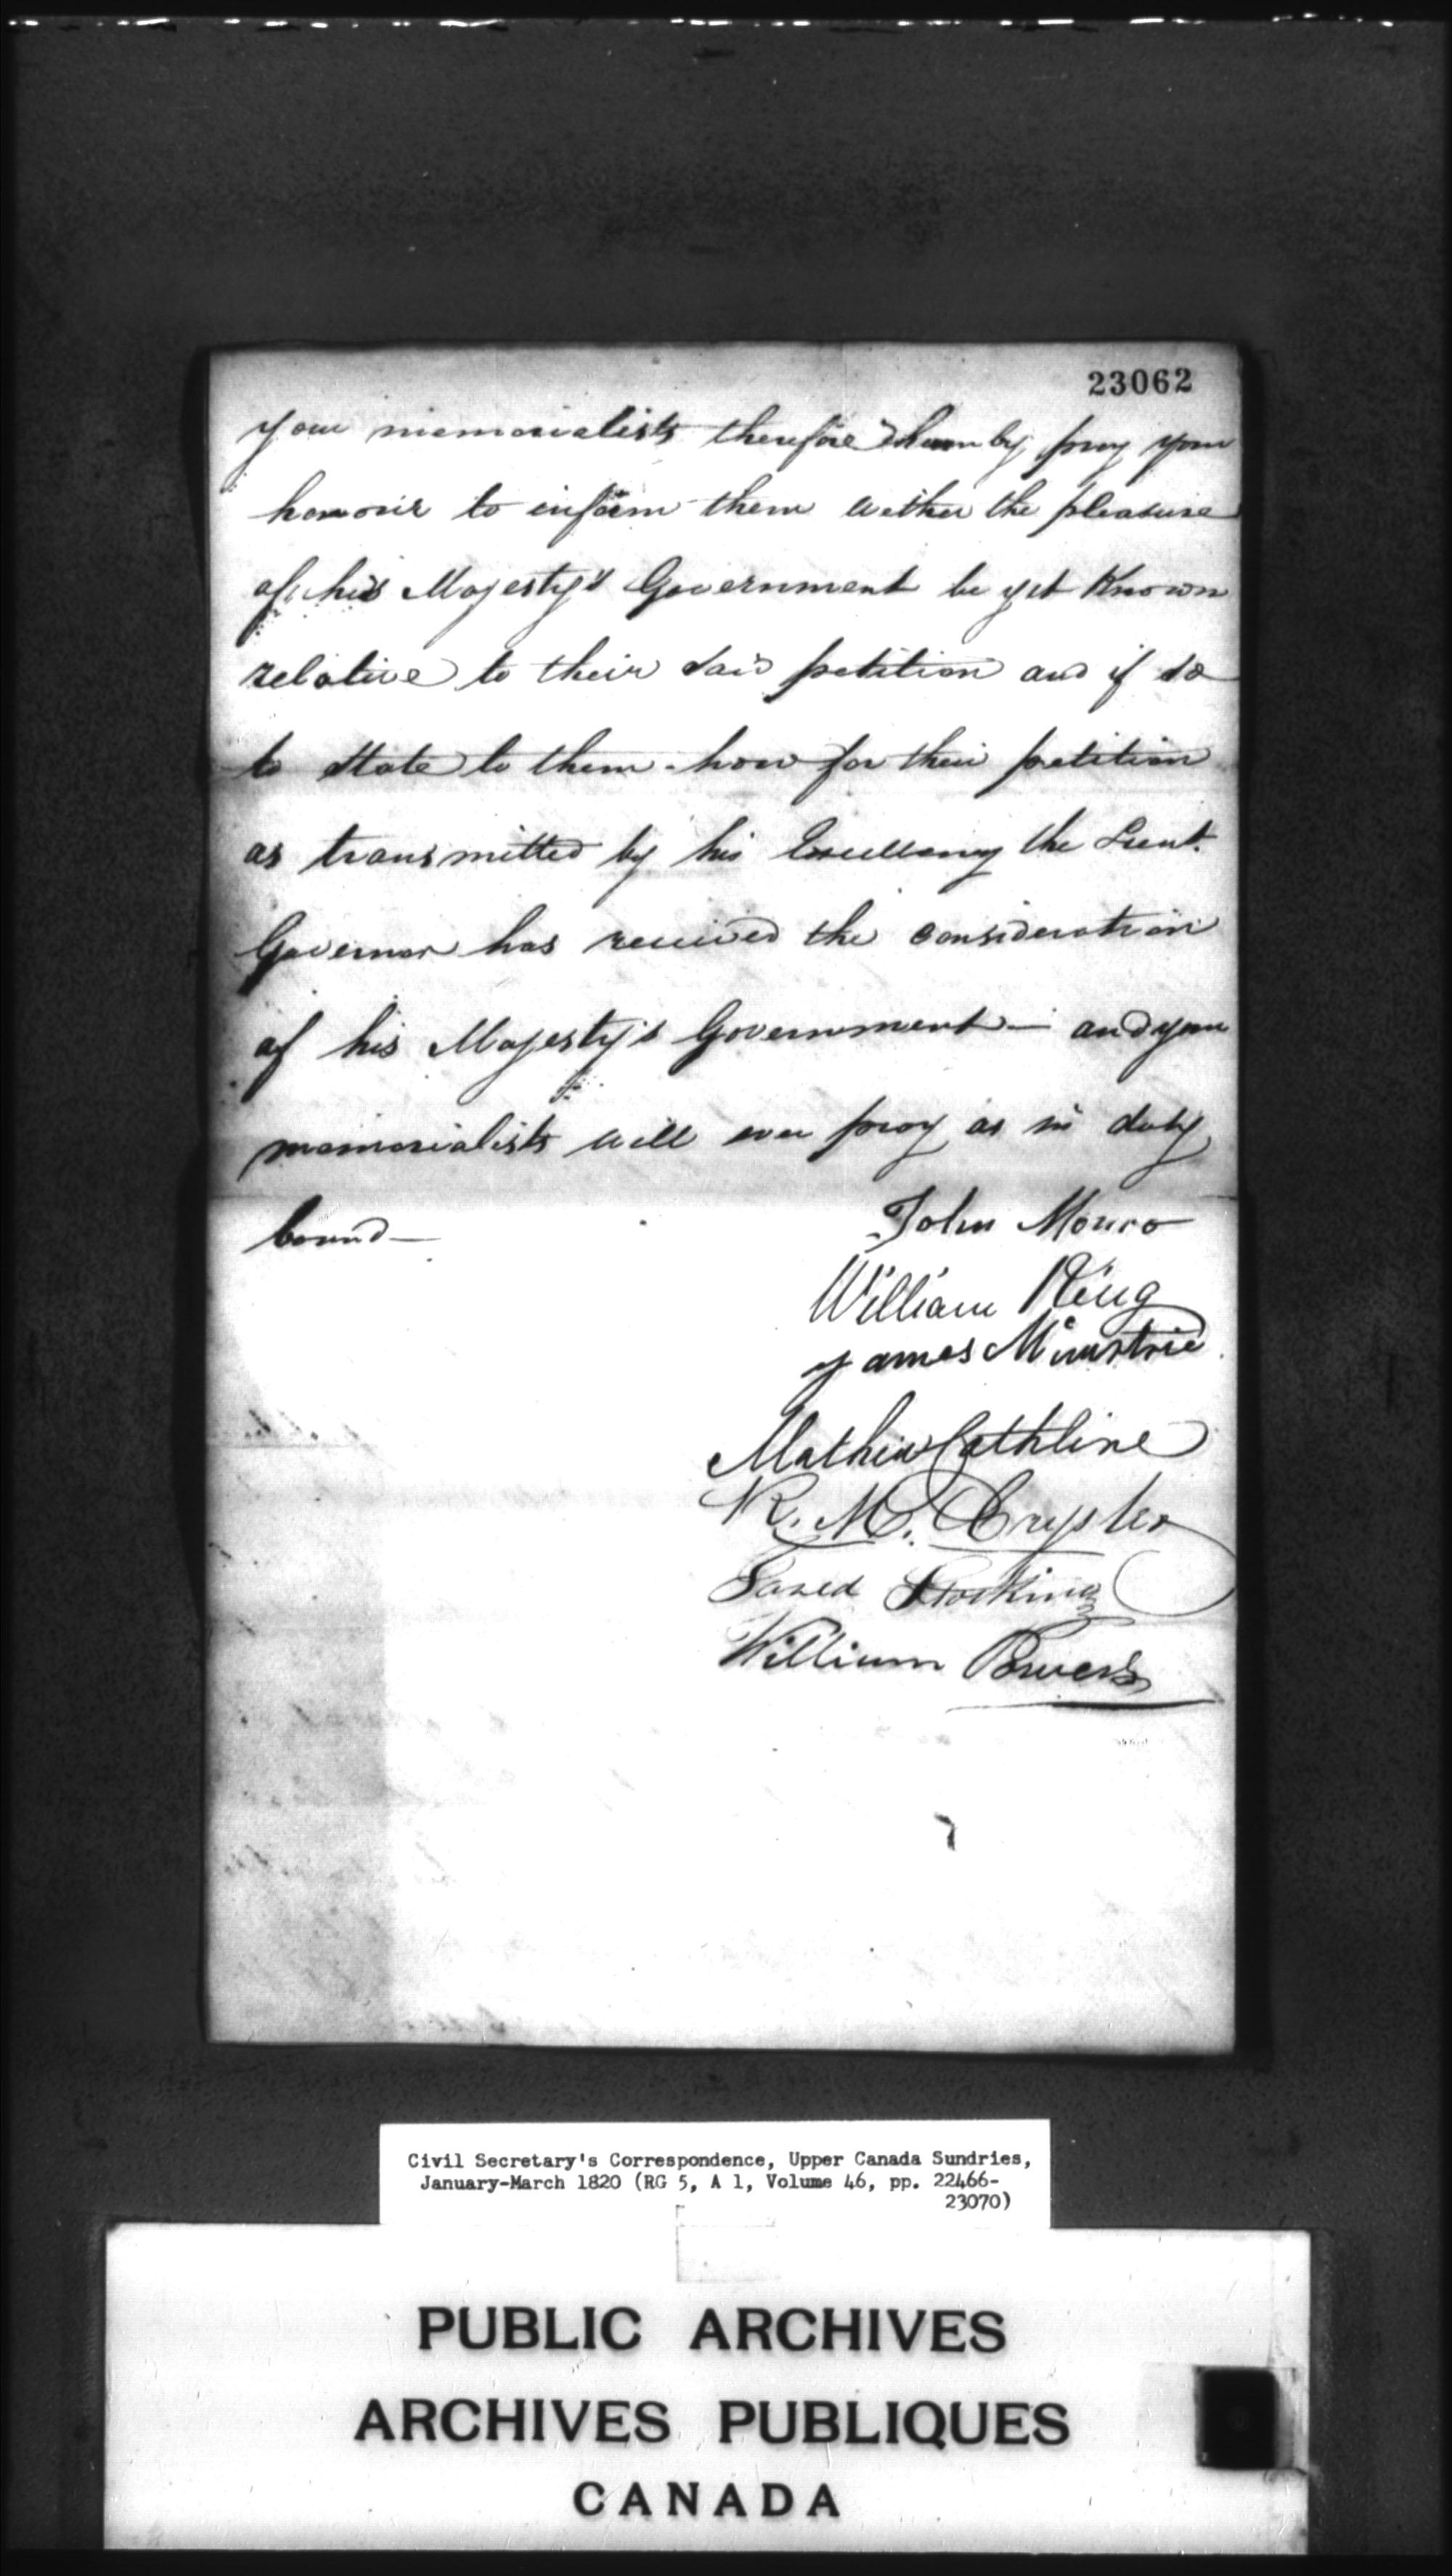 23062
your memorialists therefore humby pray your
honour to inform them wether the pleasure
of his Majesty's Government be yet Known
relative to their said petition and if so
to state to them how far their petition
as transmitted by his Excellency the Lieut.
Governor has received the consideration
of his Majesty's Government — and your
memorialists will ever pray as in duty
bound —
John Monro
William King
James
Mathew Cathline
R. M. Crysler
Jared Stocking
William Powers
Civil Secretary's Correspondence, Upper Canada Sundries,
January-March 1820 (RG 5, A 1, Volume 46, pp. 22466-
23070)
PUBLIC ARCHIVES
ARCHIVES PUBLIQUES
CANADA